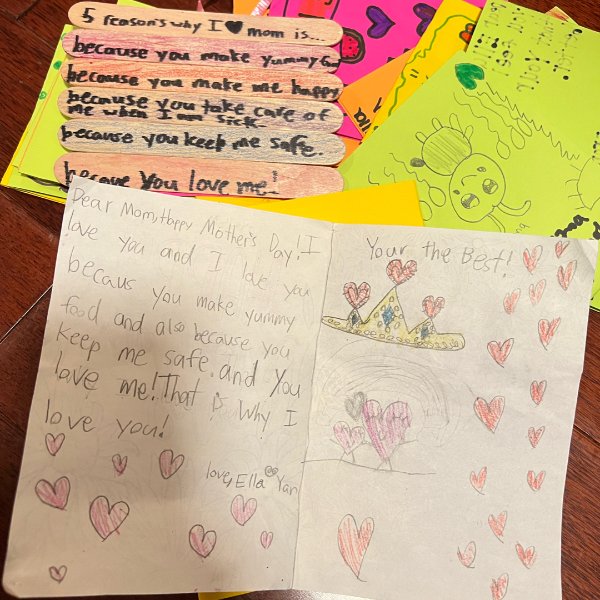 5 reason's why I ♥ mom is...
because you make yummy food
because you make me happy
because you take care of
me when I am sick.
because you keep me safe.
becaue you love me!
Dear Mom, Happy Mother's Day! I
love you and I love you
becaus you make yummy
food and also because you
keep me safe. and you
love me! That is why I
love you!
love, Ella Yan
Your the Best!